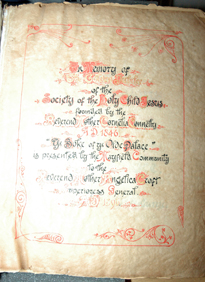 In Memory of
of the
Society of the Holy Child Jesus
founded by the
Reverend Mother Cornelia Connelly
A.D. 1846
"Ye Boke of ye Olde Palace"
is presented by the Mayfield Community
to the
Reverend Mother Angelica Croft
Superioress General
A.D.